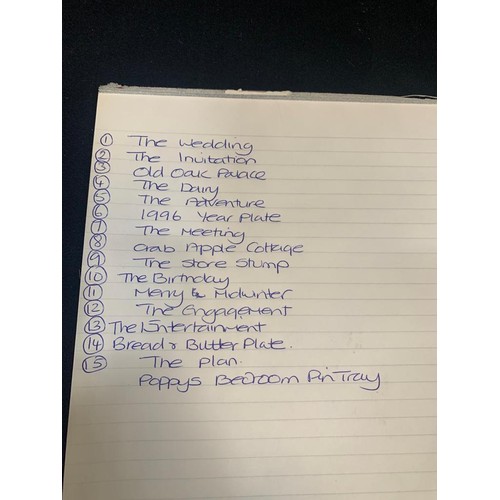 1 The Wedding
2 The Invitation
3 Old Oak Palace
4 The Dairy
5 The Adventure
6 1996 Year Plate
7 The Meeting
8 Crab Apple Cottage
9 The Store Stump
10 The Birthday
11 Merry Midwinter
12 The Engagement
13 The Entertainment
14 Bread & Butter Plate.
15 The Plan.
Poppys Bedroom Pin Tray